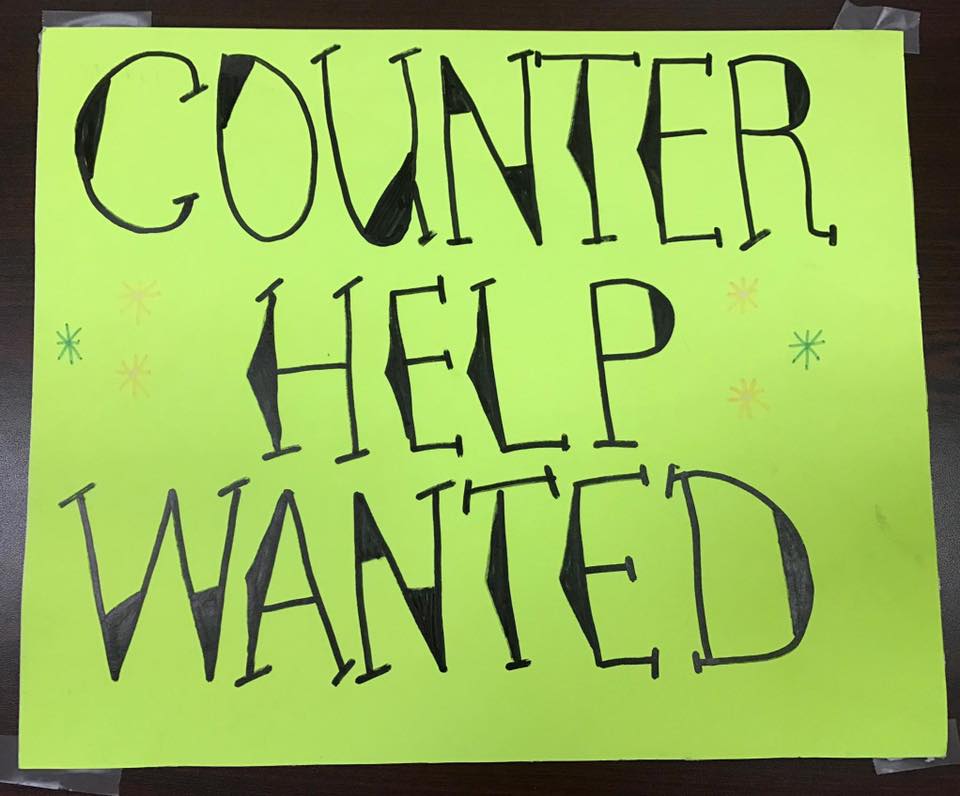 COUNTER
HELP
WANTED